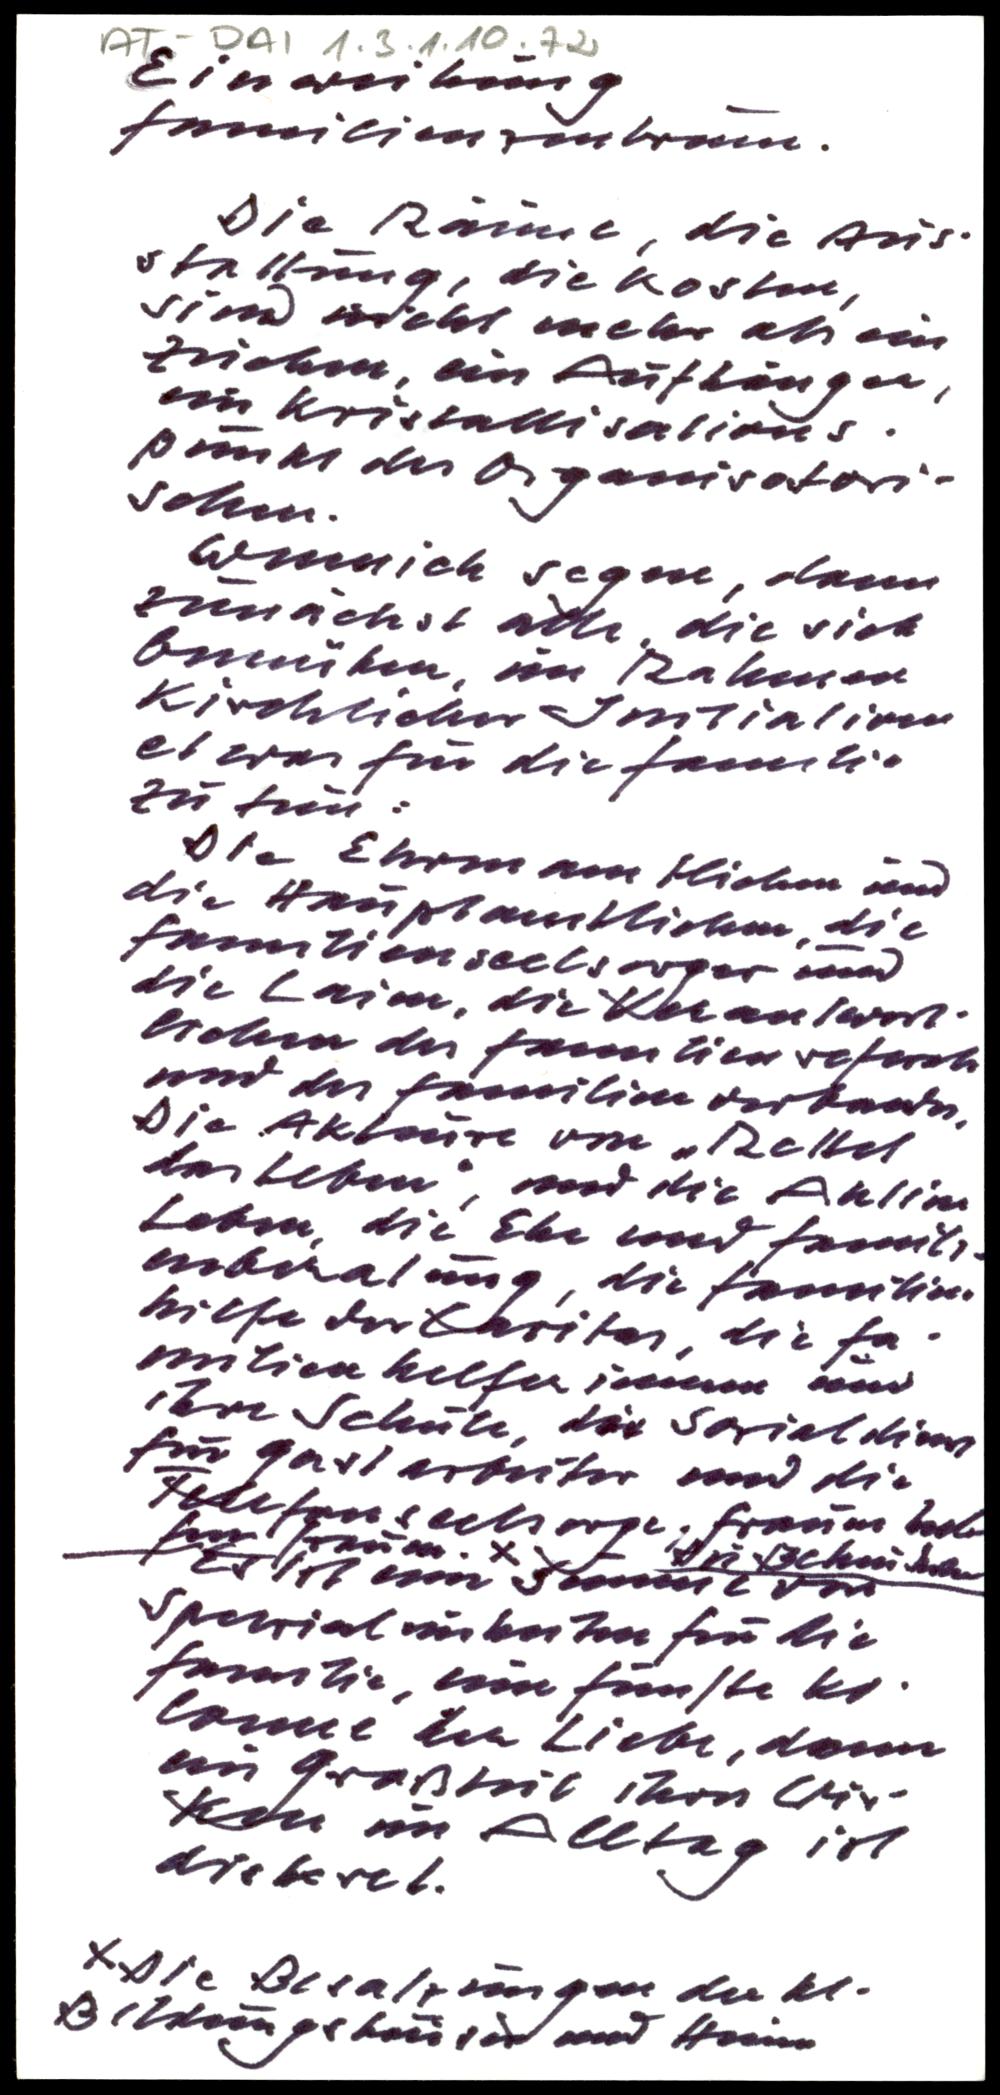 AT-DAI 1.3.1.10.72
Einweihung
Familienzentrum.
Die Räume, die Aus-
stattung, die Kosten,
sind nicht mehr als ein
Zeichen, ein Aufhänger,
ein Kristallisations-
punkt des Organisatori-
schen.
Wenn ich segne, dann
zunächst alle, die sich
bemühen, im Rahmen
kirchlicher Initiativen
etwas für die Familie
zu tun:
Die Ehrenamtlichen und
die Hauptamtlichen, die
Familienseelsorger und
die Laien, die Verantwort-
lichen des Familienreferats
und des Familienverbandes,
Die Akteure von „Rettet
das Leben", und die Aktion
Leben, die Ehe und Famili-
enberatung, die Familien-
hilfe der Caritas, die Fa-
milienhelferinnen und
ihre Schule, der Sozialdienst
für Gastarbeiter und die
Telefonseelsorge, Frauen helfen
für Frauen. x
Es ist eine Summe von
Spezialeinheiten für die
Familie, eine fünfte Ko-
lonne der Liebe, denn
ein Großteil ihres Wir-
ken im Alltag ist
diskret.
x Die Besatzungen der kl.
Bildungshäuser und Heime